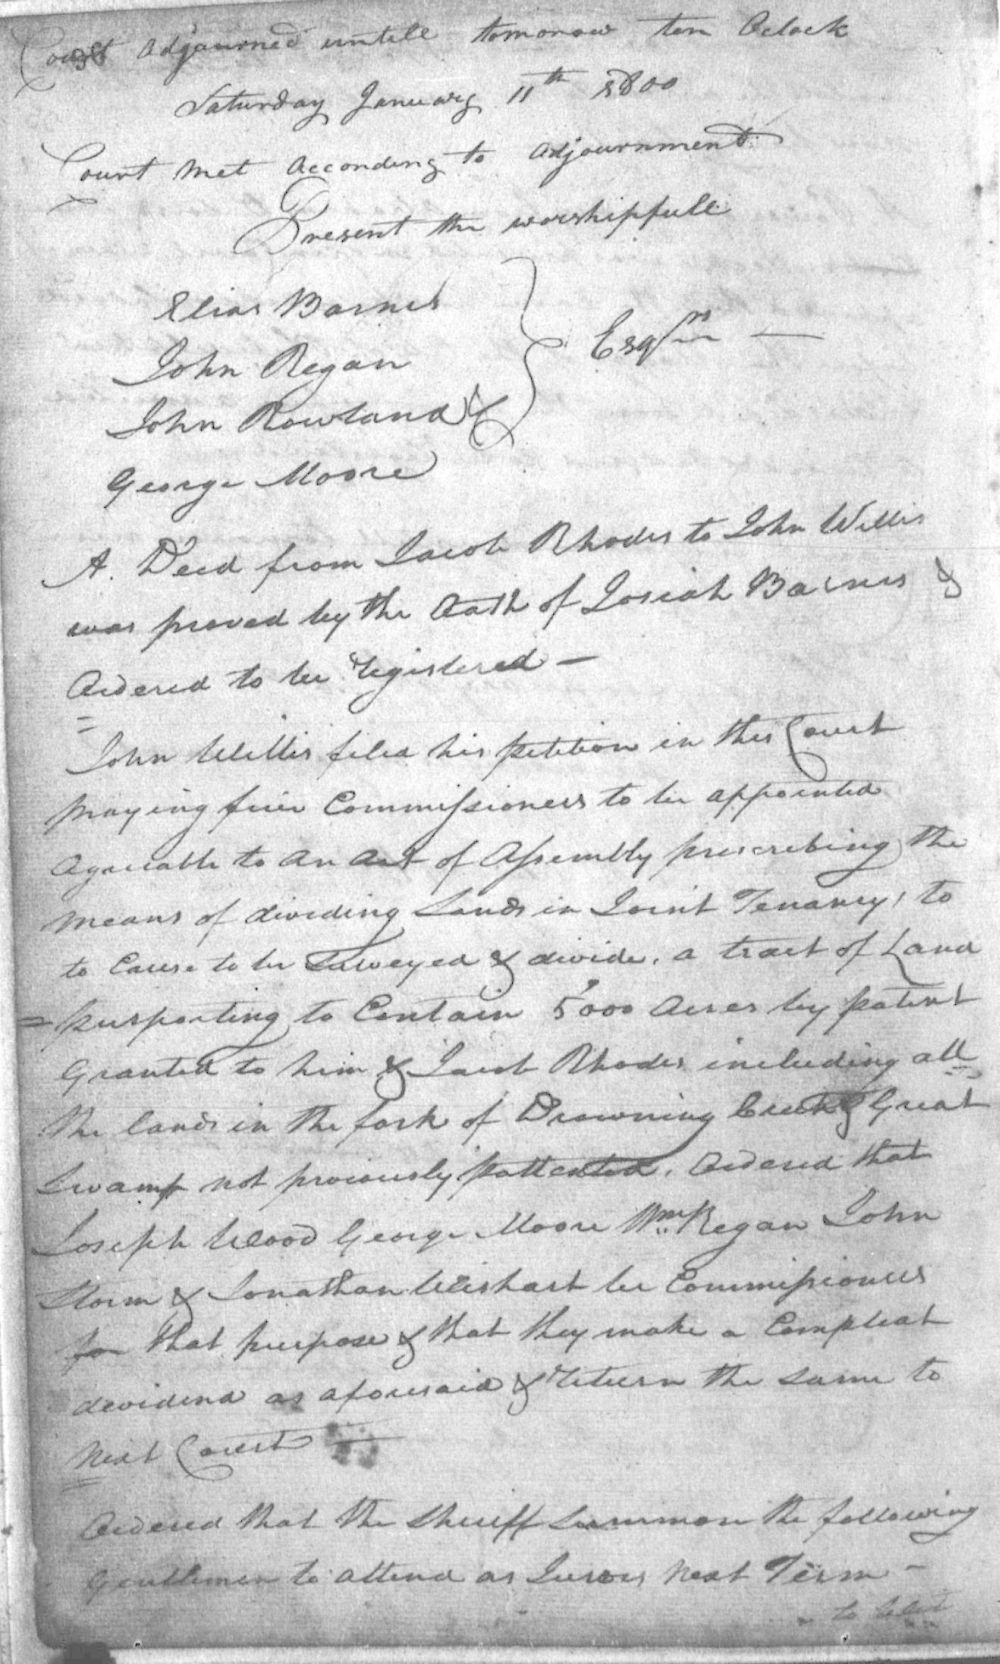 Court adjourned untill tomorow ten Oclock
Saturday January 11th 1800
Court met according to adjournment
Present the worshipfull
Elias Barnes
John Regan
John Rowland &
George Moore
Esqrs
A Deed from Jacob Rhodes to John Willis
was proved by the Oath of Josiah Barnes &
Ordered to be registered —
John Willis filed his petition in this Court
praying five Commissioners to be appointed
Agreeable to an Act of Assembly prescribing the
means of dividing Lands in Joint Tenancy, to
to Cause to be Surveyed & divide, a tract of Land
purporting to Contain 5000 Acres by patent
Granted to him & Jacob Rhodes including all
the lands in the fork of Drowning Creek & Great
Swamp not previously pattented. Ordered that
Joseph Wood George Moore Wm Regan John
Storm & Jonathan Wishart be Commissioners
for that purpose & that they make a Compleat
devidend as aforesaid & return the same to
Next Court —
Ordered that the Sheriff Summon the following
Gentlemen to attend as Jurors Next Term —
to